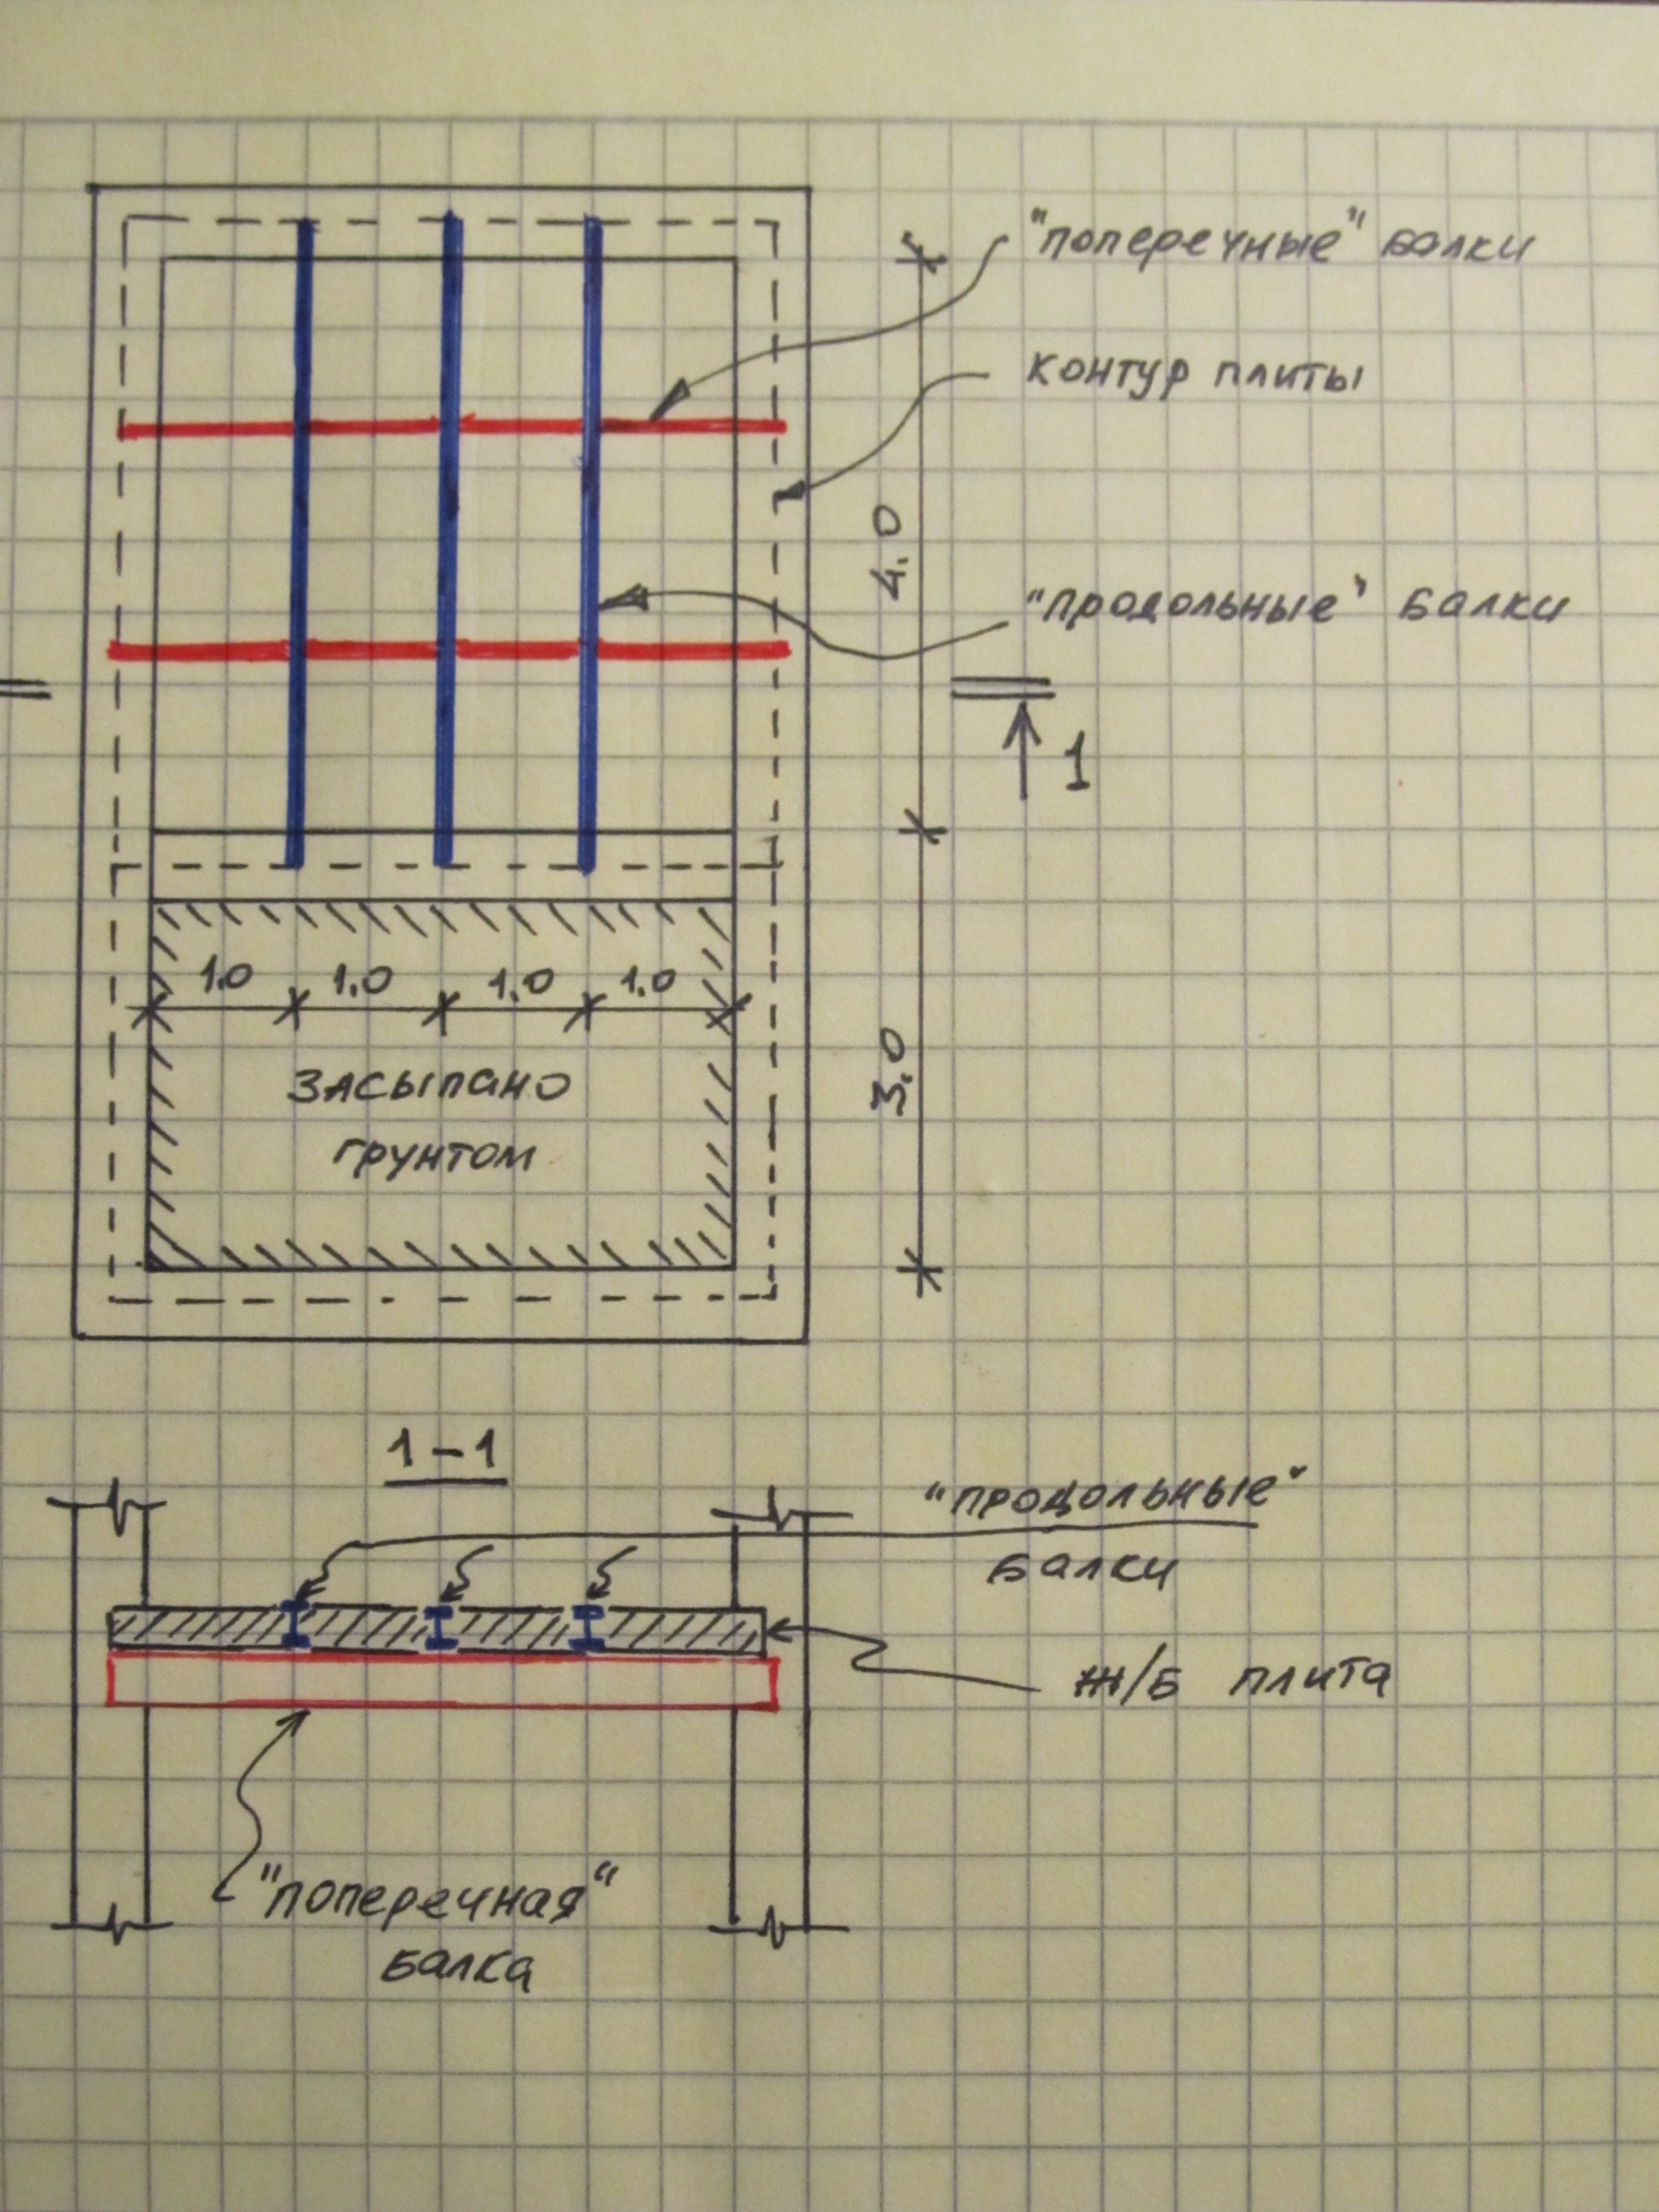 "поперечные" балки
контур плиты
4.0
"продольные" балки
1
1.0 1.0 1.0 1.0
засыпано
грунтом
3.0
1-1
"продольные"
балки
ж/б плита
"поперечная"
балка